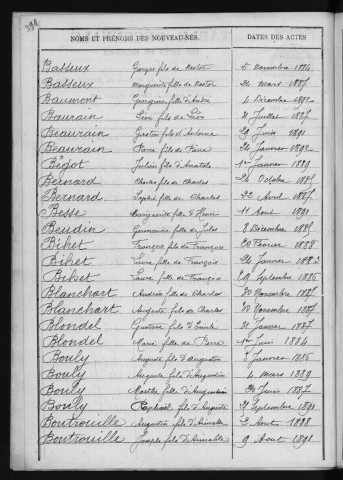 NOMS ET PRÉNOMS DES NOUVEAU-NÉS.
DATES DES ACTES
Basseux Georges fils de Nestor 5 Novembre 1884
Basseux Marguerite fille de Nestor 24 Mars 1887
Baumont Georgina fille d'André 4 Décembre 1892
Baurain Léon fils de Léon 21 Juillet 1887
Beaurain Gaston fils d' 29 Juin 1891
Beaurain Pierre fils de Pierre 24 Janvier 1892
Bégot Julien fils d'Anatole 1er Janvier 1889
Bernard Charles fils de Charles 24 Octobre 1885
Bernard Sophie fille de Charles 22 Avril 1887
Besse Marguerite fille d'Henri 11 Août 1891
Beudin Germaine fille de Jules 8 Décembre 1885
Bihet François fils de François 20 Février 1888
Bihet Laure fille de François 24 Janvier
Bihet Laure fille de François 29 Septembre 1886
Blanchart fille de Charles 20 Novembre 1885
Blanchart Auguste fils de Charles 20 Novembre 1887
Blondel Gustave fils d'Émile 21 Janvier 1887
Blondel Marie fille de Pierre 1er Juin 1884
Bouly Auguste fils d'Augustin Janvier 1886
Bouly Augusta fille d'Augustin 4 Mars 1889
Bouly Marthe fille d'Augustin 20 Juin 1887
Bouly Raphaël fils d'Auguste 21 Septembre 1891
Boutrouille Augustin fils d'Aimable 2 Août 1888
Boutrouille Joseph fils d'Aimable 9 Août 1891